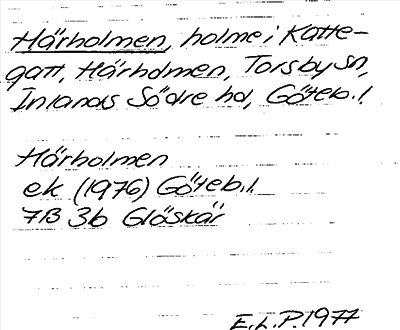 Härholmen, holme i Katte-
gatt, Härholmen, Torsby sn,
Inlands Södre hd, Göteb. l.
Härholmen
ek (1976) Göteb. l.
7B 3b Glöskär
E.L.P. 1977